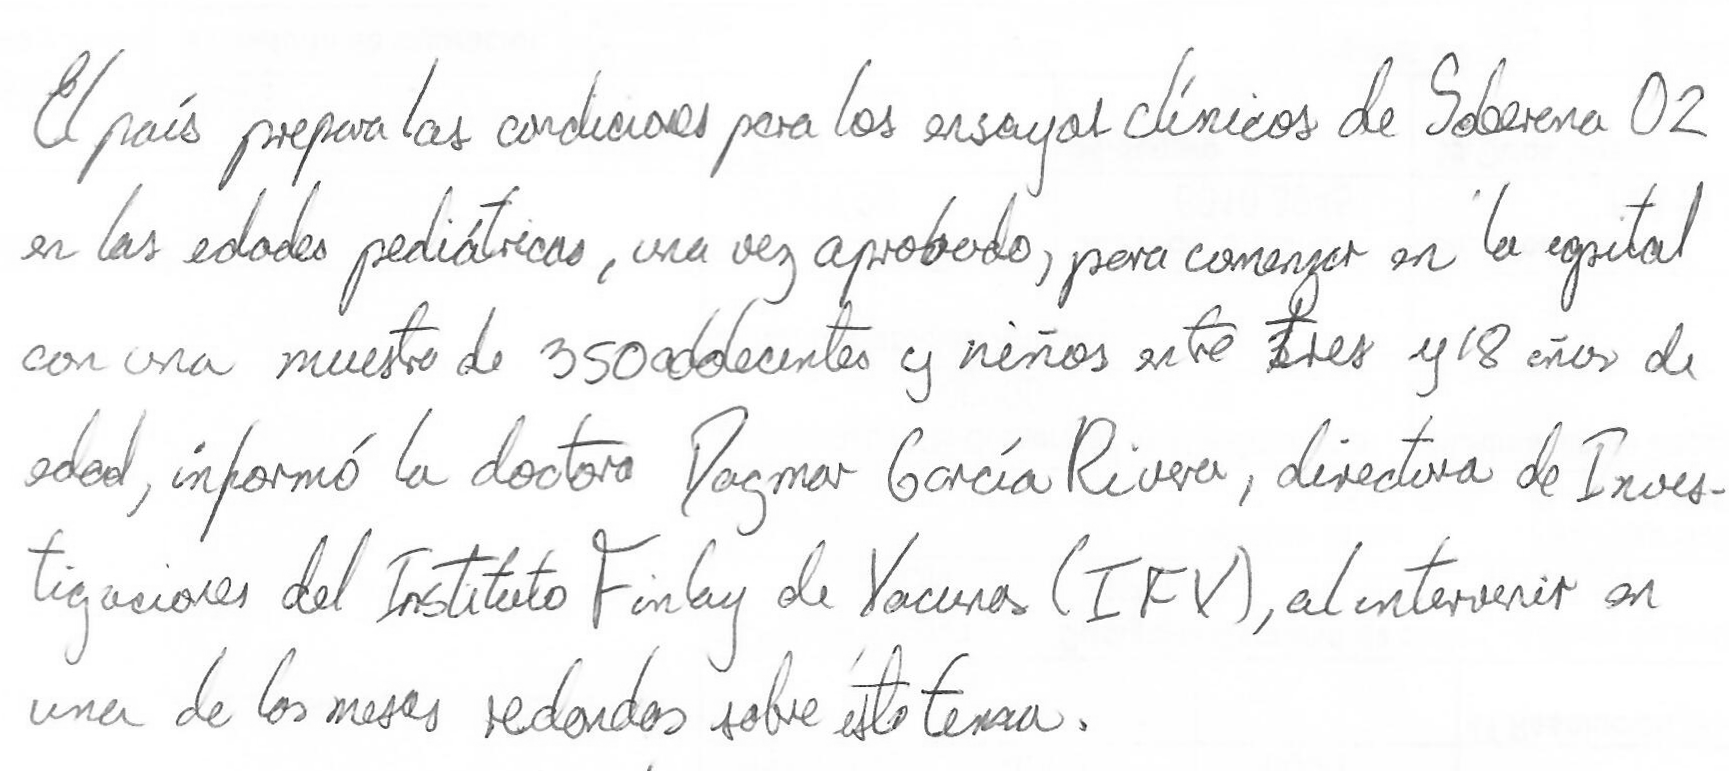 El país prepara las condiciones para los ensayos clínicos de Soberana 02
en las edades pediátricas, una vez aprobado, para comenzar en la capital
con una muestra de 350 adolecentes y niños entre tres y 18 años de
edad, informó la doctora Dagmar García Rivera, directora de Inves-
tigaciones del Instituto Finlay de Vacunas (IFV), al intervenir en
una de las mesas redondas sobre éste tema.